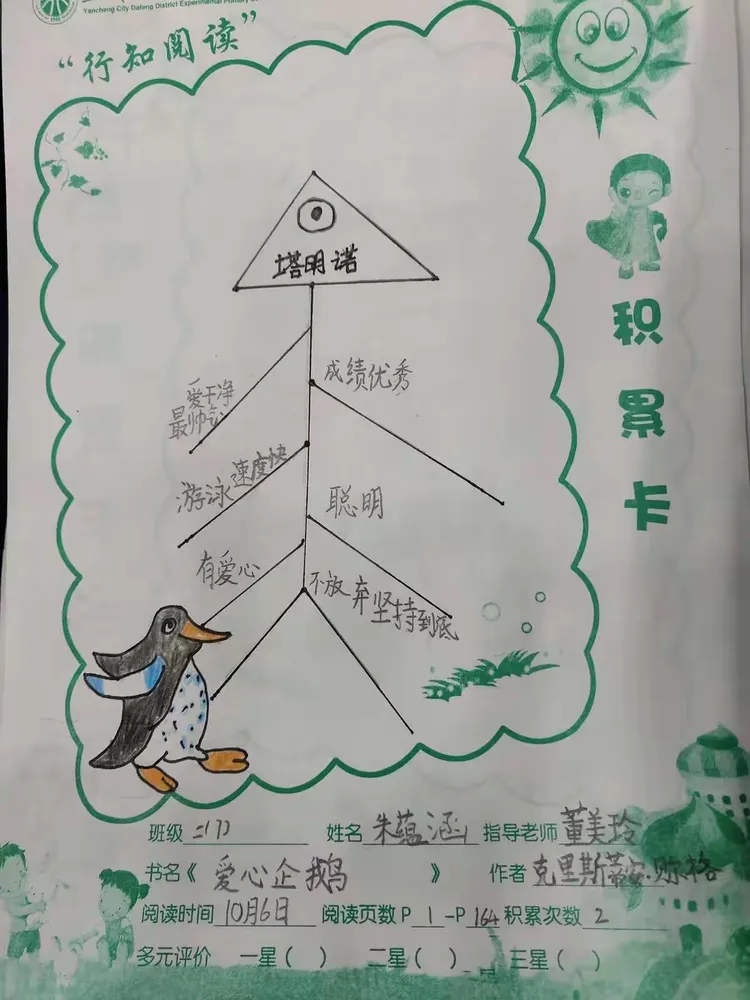 Yancheng City Dafeng District Experimental Primary
“行知阅读”
积累卡
塔明诺
成绩优秀
爱干净
最帅气
速度快
游泳
聪明
有爱心
不放弃坚持到底
班级 二(7) 姓名 朱蕴涵 指导老师 董美玲
书名《 爱心企鹅 》 作者 克里斯蒂安·
阅读时间 10月6日 阅读页数 P 1 -P 164 积累次数 2
多元评价 一星( ) 二星( ) 三星( )